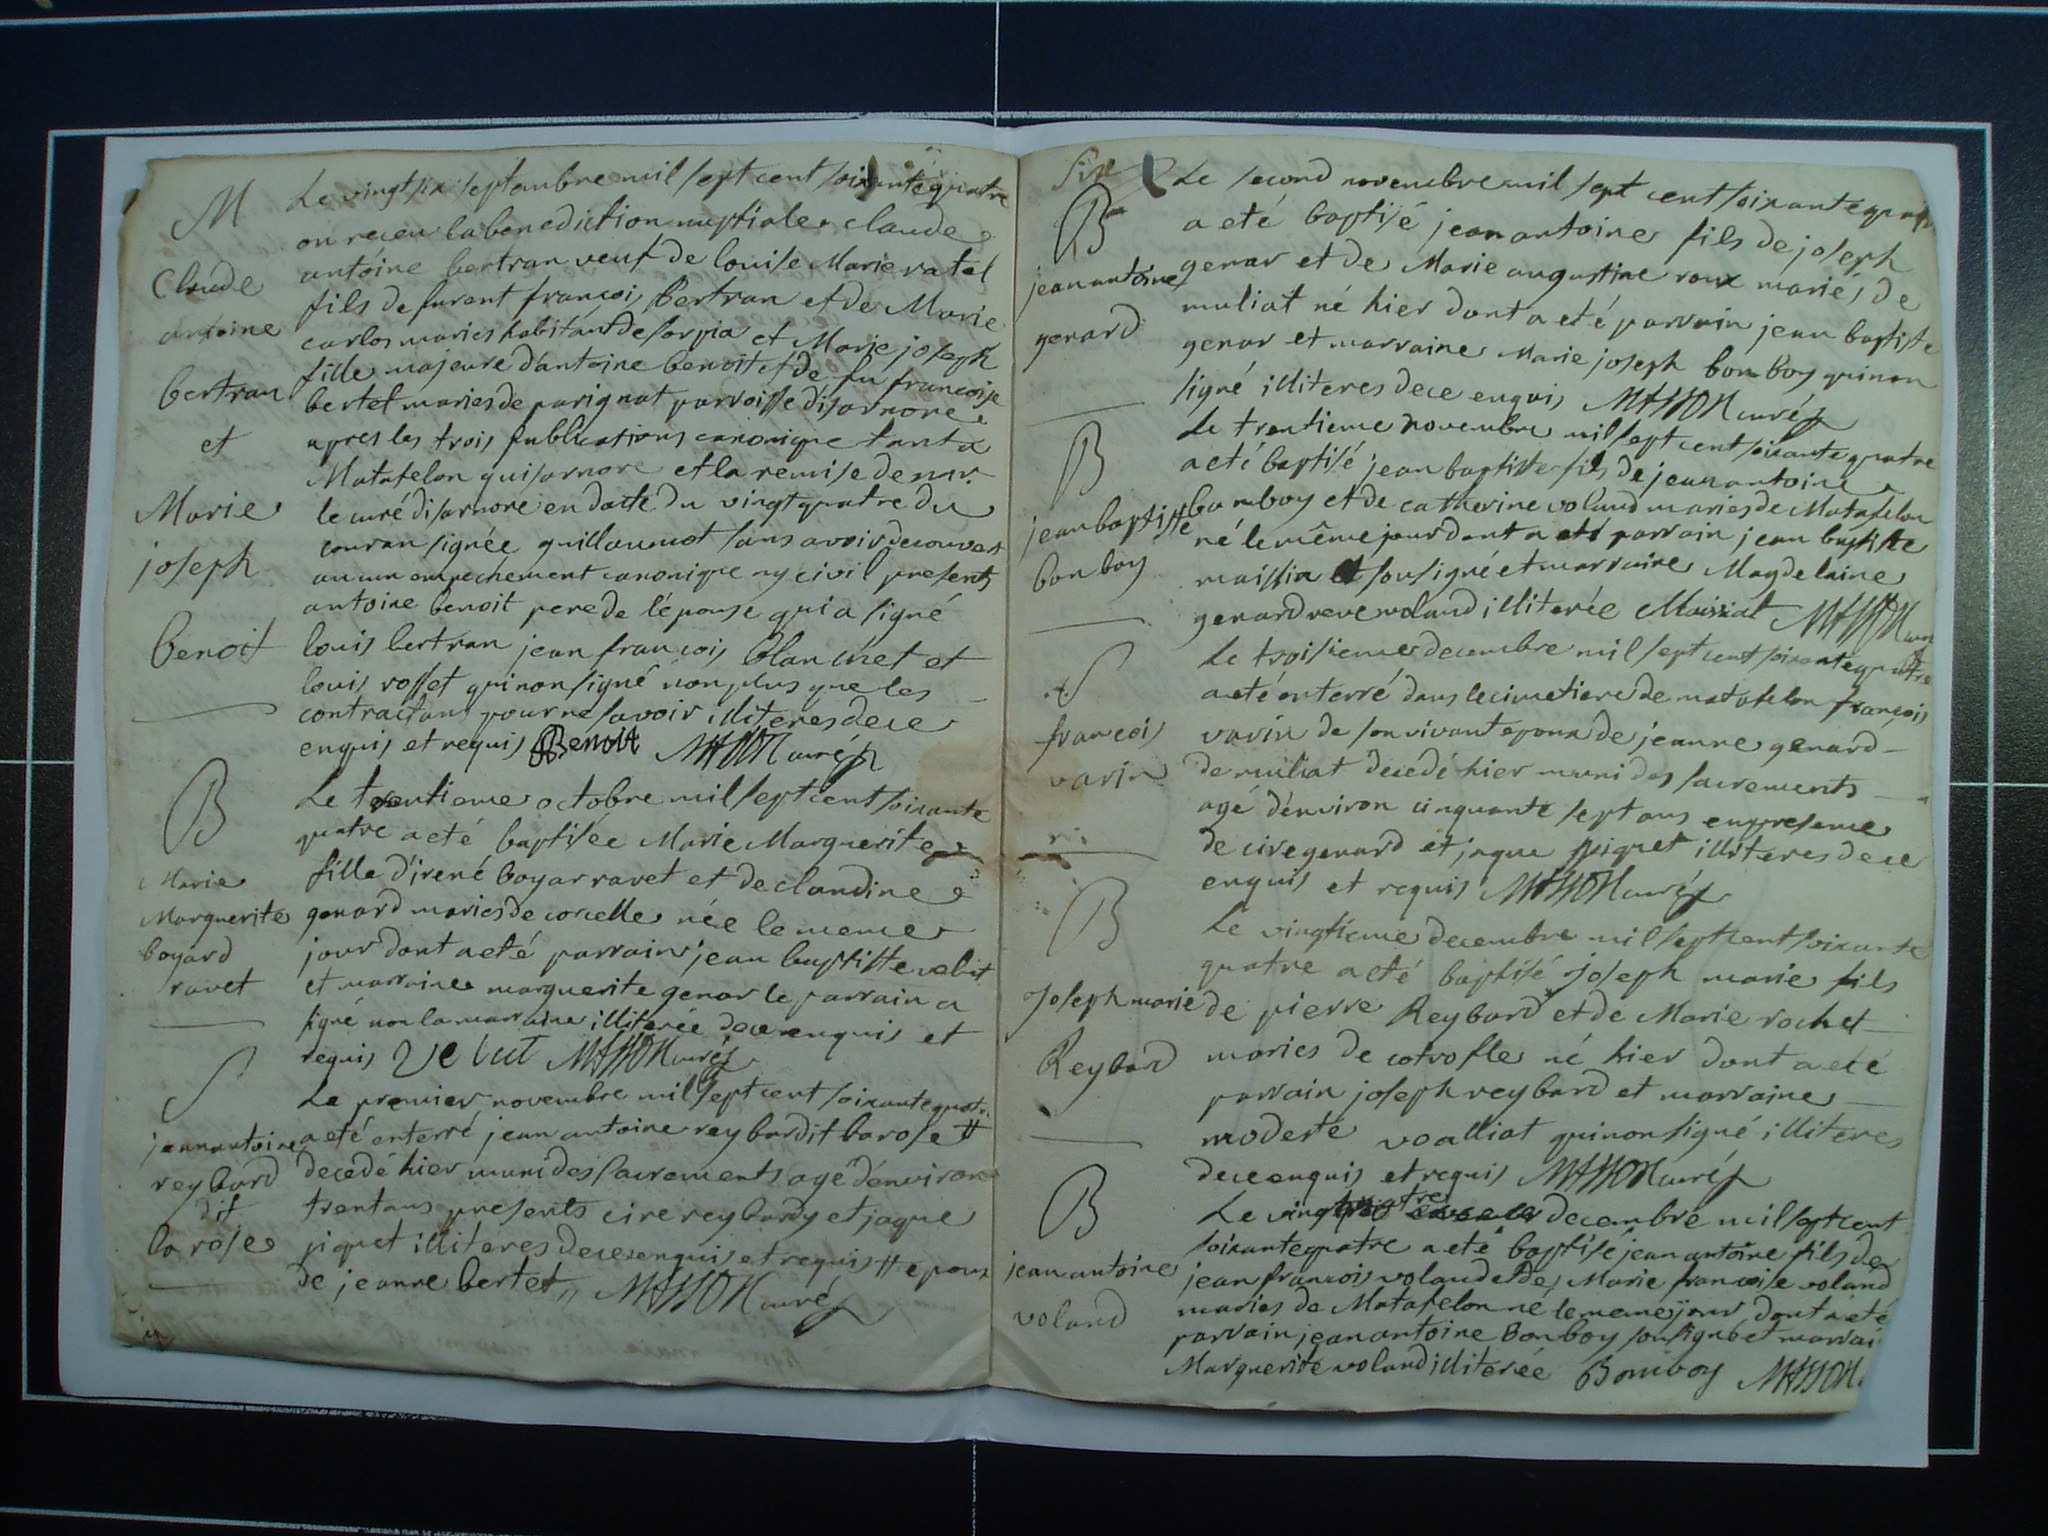 M
Claude
antoine
bertran
et
Marie
joseph
benoit
Le vingt six septambre mil sept cent soixante quatre
on receu la benediction nuptiale claude
antoine bertran veuf de louise Marie ratel
fils de furent françois Bertran et de Marie
carlos maries habitant de sorpia et Marie joseph
fille majeure d'antoine benoit et de fu françoise
bertet maries de parignat parroisse d'isarnore
apres les trois publications canonique tant a
Matafelon qu'isarnore et la remise de mr.
le curé d'isarnore en dacte du vingt quatre du
couran signée guillaumot sans avoir decouvert
aucun empechement canonique ny civil presents
antoine benoit pere de l'épouse qui a signé
louis bertran jean françois blanchet et
louis rosset qui non signé non plus que les
contractans pour ne savoir illiteres de ce
enquis et requis Benoit MASSON curé
B
Marie
Marguerite
boyard
ravet
Le trentieme octobre mil sept cent soixante
quatre a eté baptisée Marie Marguerite
fille d'irené boyar ravet et de claudine
genard maries de corcelle née le meme
jour dont a eté parrain jean baptiste velut
et marraine marguerite genar le parrain a
signé non la marraine illiterée de ce enquis et
requis Velut MASSON curé
S
jean antoine
reybard
dit
la rose
Le premier novembre mil sept cent soixante quatr.
a eté enterré jean antoine reybar dit la rose #
decedé hier muni des sacrements agé d'environ
trent ans presents cire reybardy et jaque
piquet illiteres de ce enquis et requis # epoux
de jeanne bertet,, MASSON curé
Six
B
jean antoine
genard
Le second novembre mil sept cent soixante quatre
a eté baptisé jean antoine fils de joseph
genar et de Marie augustine roux mariés de
muliat né hier dont a eté parrain jean baptiste
genar et marraine Marie joseph bonboy qui non
signé illiteres de ce enquis MASSON curé
B
jean baptiste
bonboy
Le trentieme novembre mil sept cent soixante quatre
a eté baptisé jean baptiste fils de jean antoine
bomboy et de catherine voland maries de Matafelon
né le même jour dont a eté parrain jean baptiste
maissia sousigné et marraine Magdelaine
genard veve voland illiterée Maissiat MASSON curé
S
françois
varin
Le troisieme decembre mil sept cent soixante quatre
a eté enterré dans le cimetiere de matafelon françois
varin de son vivant epoux de jeanne genard
de muliat decedé hier muni des sacrements
agé d'environ cinquante sept ans en presence
de cire genard et jaque piquet illiteres de ce
enquis et requis MASSON curé
B
Joseph marie
Reybard
Le vingtieme decembre mil sept cent soixante
quatre a eté baptisé joseph marie fils
de pierre Reybard et de Marie rochet
maries de cotrofle né hier dont a eté
parrain joseph reybard et marraine
modeste voalliat qui non signé illiteres
de ce enquis et requis MASSON curé
B
jean antoine
voland
Le vingt quatre decembre mil sept cent
soixante quatre a eté baptisé jean antoine fils de
jean françois voland et de Marie françoise voland
maries de Matafelon né le meme jour dont a eté
parrain jean antoine Bonboy sousigné et marrai
Marguerite voland illiterée Bomboy MASSON